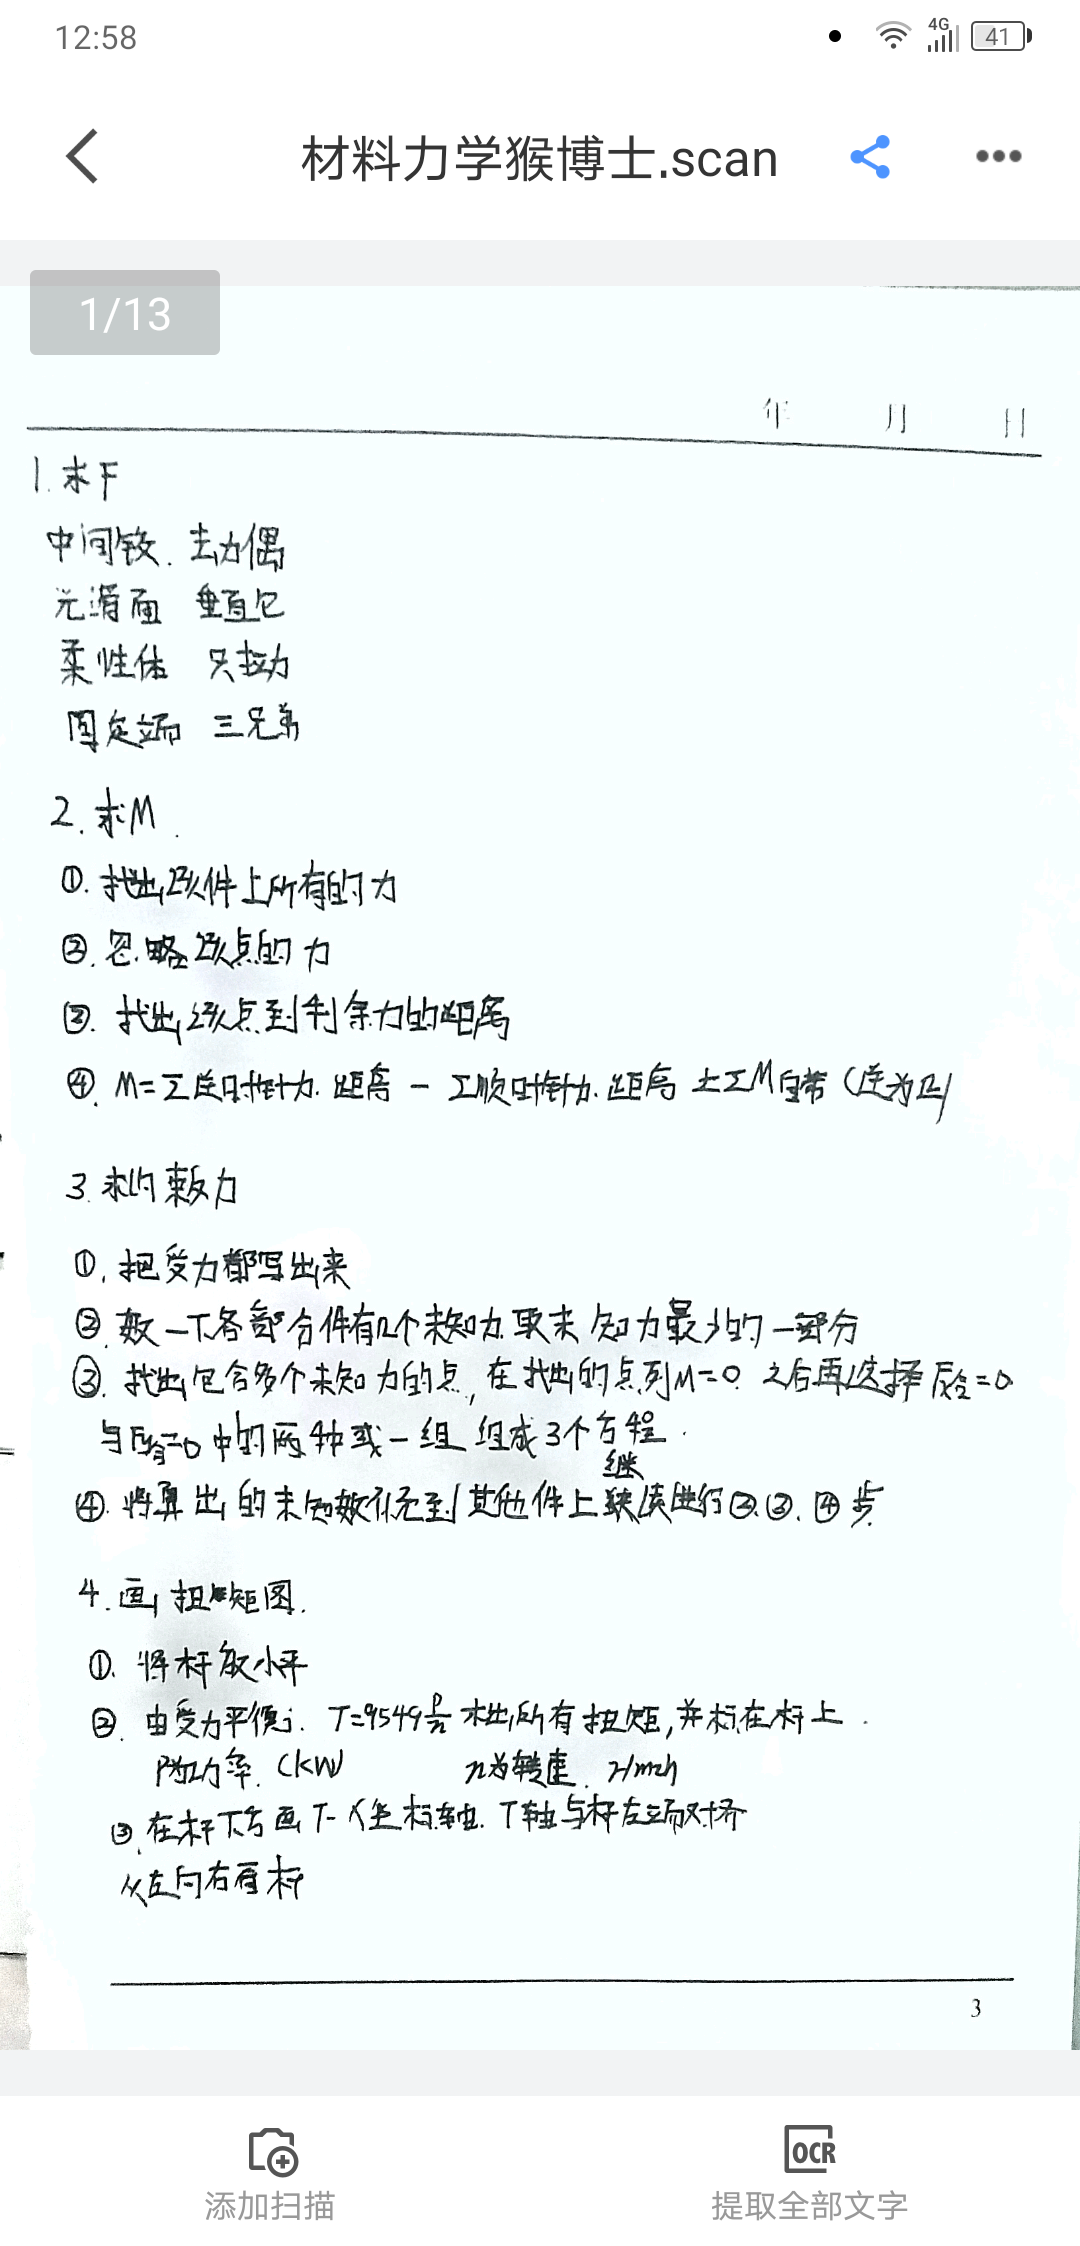 12:58
4G
41
材料力学猴博士.scan
1/13
年 月 日
1. 求F
中间铰. 去力偶
光滑面 垂直它
柔性体 只拉力
固定端 三兄弟
2. 求M.
①. 找出该件上所有的力
②. 忽略该点的力
③. 找出该点到剩余力的距离
④. M=Σ逆时针力·距离 - Σ顺时针力·距离 ±ΣM自带 (逆为正)
3. 求约束反力
①. 把受力都写出来
②. 数一下各部分件有几个未知力.取未知力最少的一部分
③. 找出包含多个未知力的点, 在找出的点列M=0. 之后再选择F合=0
与F合=0中的两种或一组 组成3个方程.
继
④. 将算出的未知数代元到其他件上续进行②.③.④步.
4. 画扭矩图.
①. 将杆放水平
②. 由受力平衡. T=9549P/n 求出所有扭矩,并标在杆上.
P为功率. (kW) n为转速. r/min
③. 在杆下方画T-X坐标轴. T轴与杆左端对齐
从左向右看杆
3
添加扫描
OCR
提取全部文字